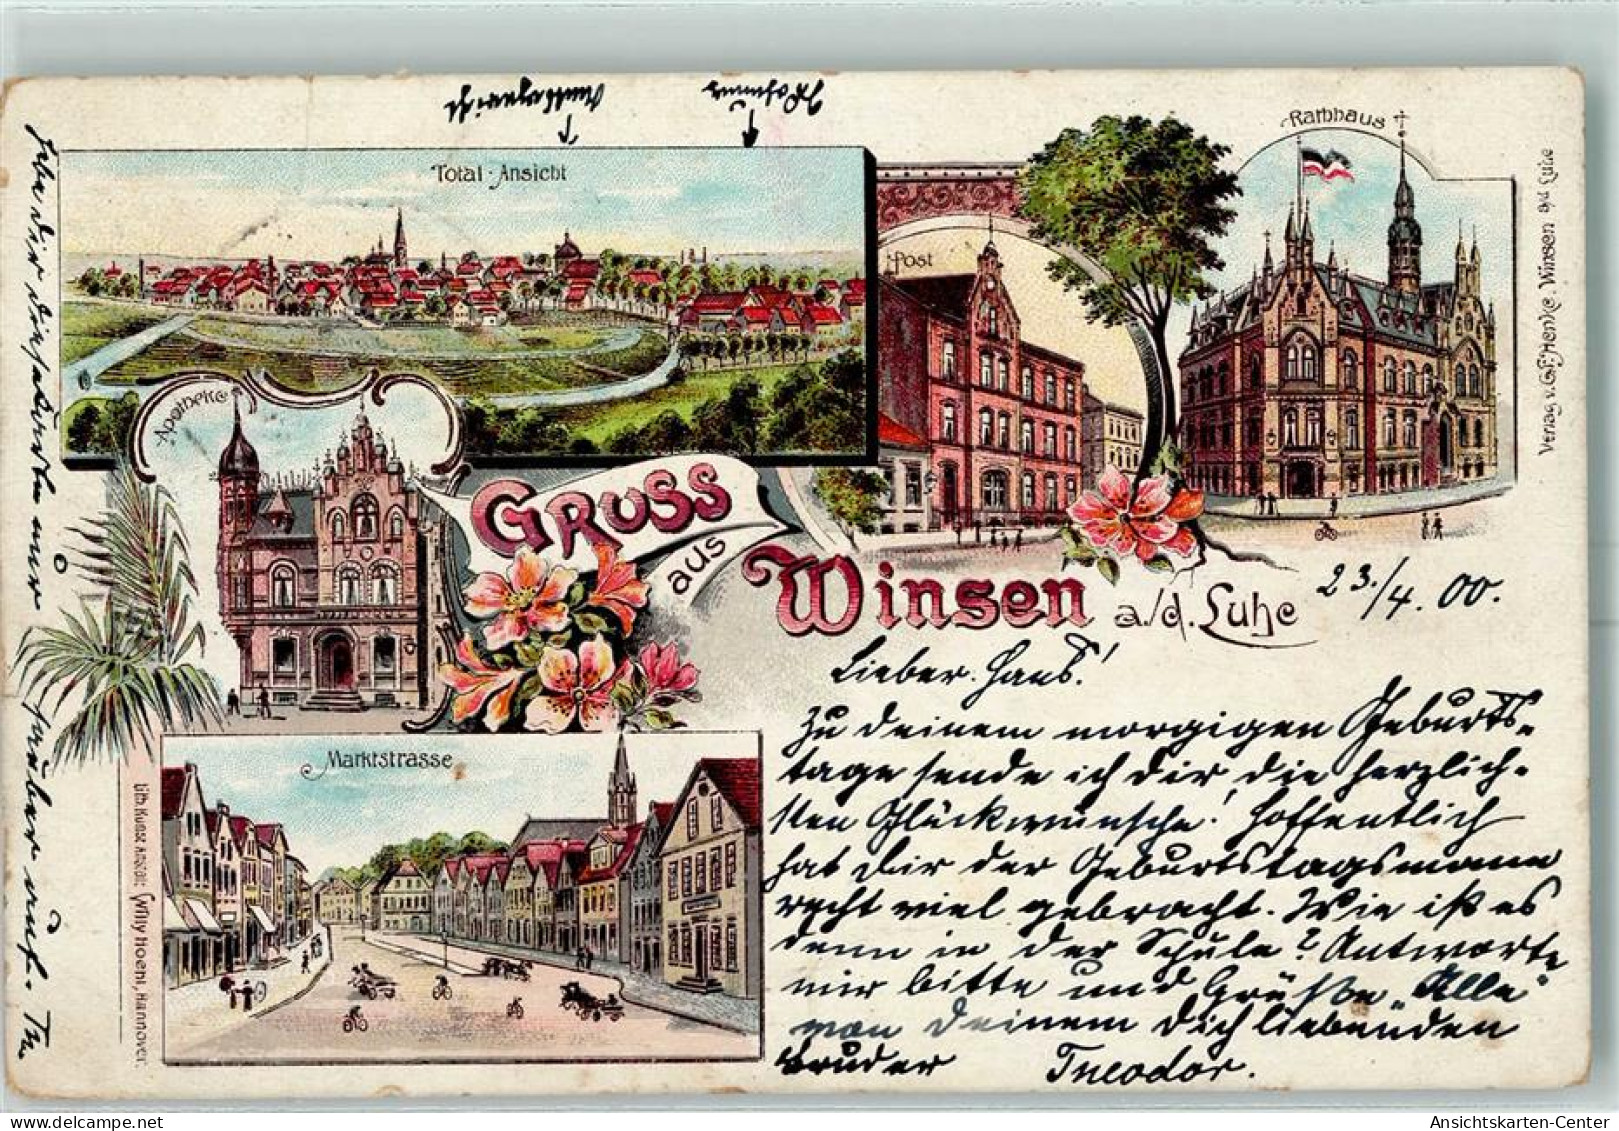 Amtsgericht
Total-Ansicht
Rathhaus
Post
Apotheke
GRUSS
aus
Winsen a./d. Luhe
Marktstrasse
23./4. 00.
Lieber Hans!
Zu deinem morgigen Geburts-
tage sende ich dir die herzlich-
sten Glückwünsche! Hoffentlich
hat dir der Geburtstagsmann
recht viel gebracht. Wie ist es
denn in der Schule? Antworte
mir bitte und Grüße „Alle"
von Deinem Dich liebenden
Bruder Theodor.
Verlag v. G. F. Henke, Winsen a/d Luhe
Lith. Kunst Anstalt Willy Hoehl, Hannover.